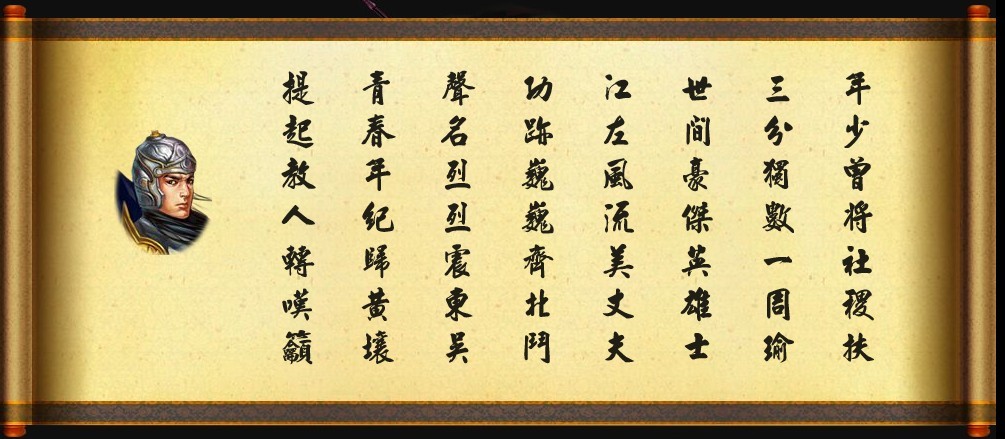 年少曾將社稷扶
三分獨數一周瑜
世間豪傑英雄士
江左風流美丈夫
功跡巍巍齊北鬥
聲名烈烈震東吳
青春年紀歸黃壤
提起教人轉嘆籲